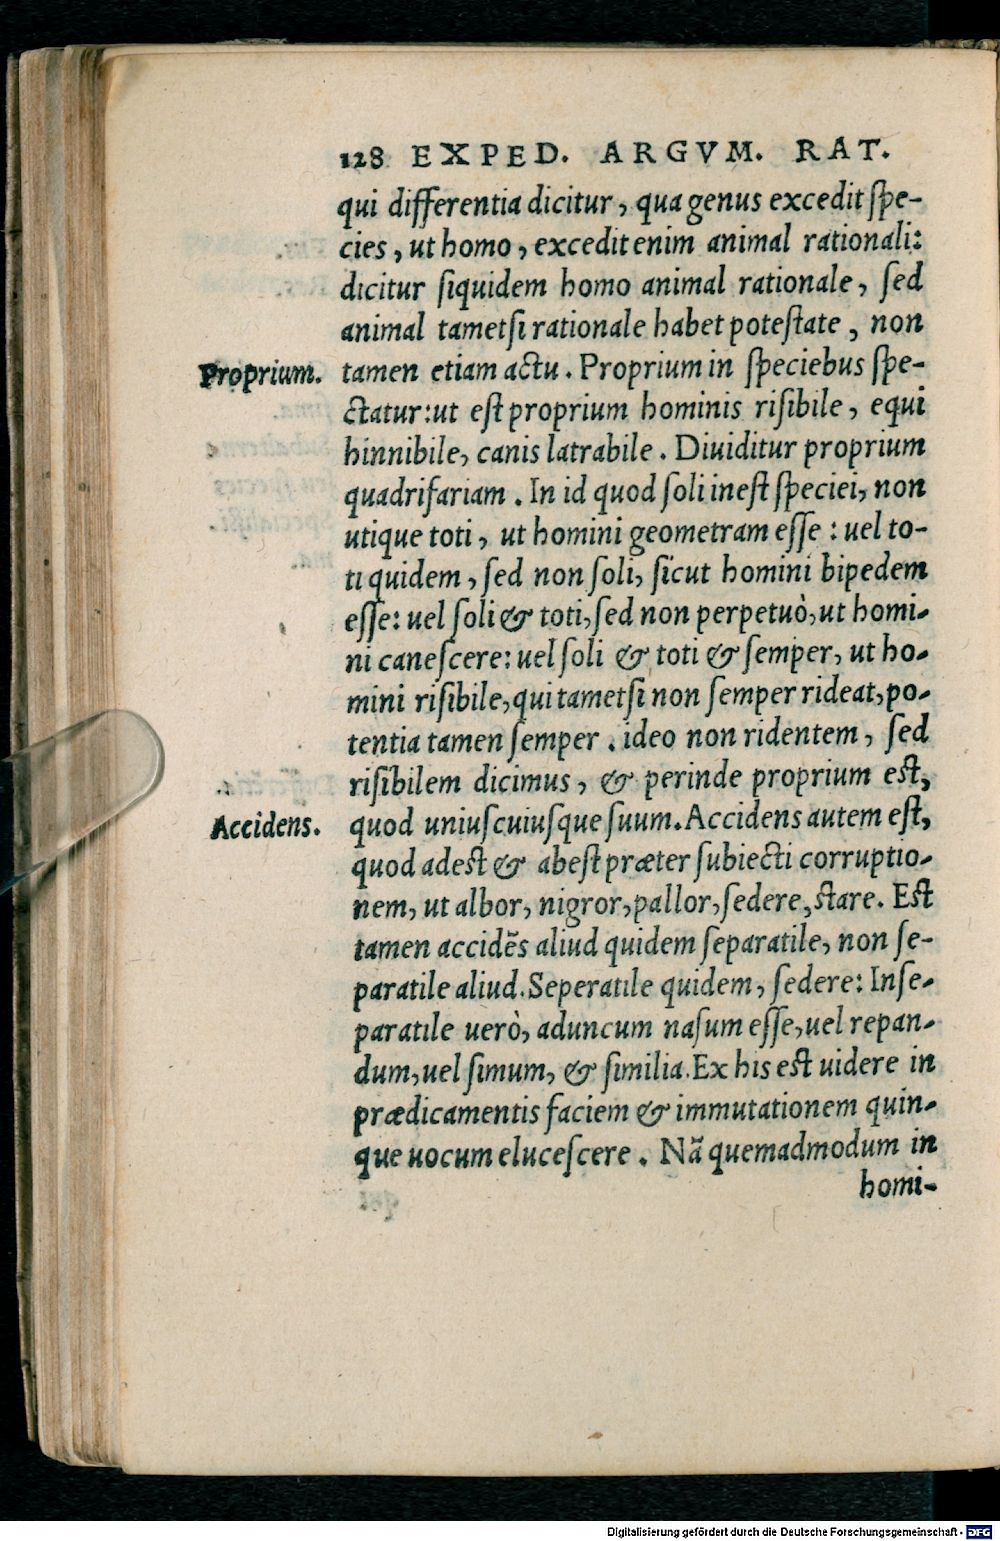 128 EXPED. ARGVM. RAT.
qui differentia dicitur, qua genus excedit ſpe-
cies, ut homo, excedit enim animal rationali:
dicitur ſiquidem homo animal rationale, ſed
animal tametſi rationale habet poteſtate, non
Proprium. tamen etiam actu. Proprium in ſpeciebus ſpe-
ctatur: ut eſt proprium hominis riſibile, equi
hinnibile, canis latrabile. Diuiditur proprium
quadrifariam. In id quod ſoli ineſt ſpeciei, non
utique toti, ut homini geometram eſſe: uel to-
ti quidem, ſed non ſoli, ſicut homini bipedem
eſſe: uel ſoli & toti, ſed non perpetuò, ut homi-
ni caneſcere: uel ſoli & toti & ſemper, ut ho-
mini riſibile, qui tametſi non ſemper rideat, po-
tentia tamen ſemper. ideo non ridentem, ſed
riſibilem dicimus, & perinde proprium eſt,
Accidens. quod uniuſcuiuſque ſuum. Accidens autem eſt,
quod adeſt & abeſt præter ſubiecti corruptio-
nem, ut albor, nigror, pallor, ſedere, ſtare. Eſt
tamen accidẽs aliud quidem ſeparatile, non ſe-
paratile aliud. Seperatile quidem, ſedere: Inſe-
paratile uerò, aduncum naſum eſſe, uel repan-
dum, uel ſimum, & ſimilia. Ex his eſt uidere in
prædicamentis faciem & immutationem quin-
que uocum eluceſcere. Nã quemadmodum in
homi-
Digitalisierung gefördert durch die Deutsche Forschungsgemeinschaft - DFG